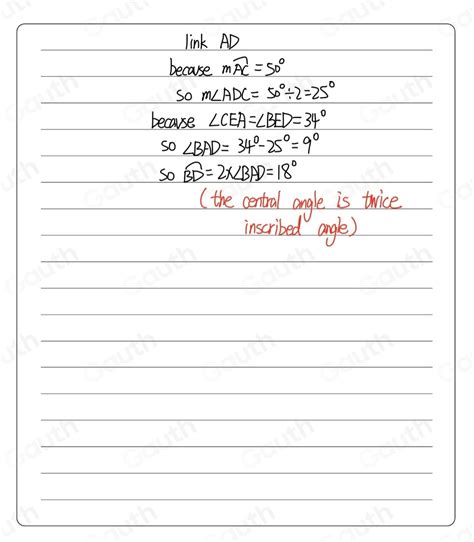 link AD
because m⌒AC = 50°
so m∠ADC = 50°÷2=25°
because ∠CEA=∠BED=34°
so ∠BAD = 34°-25°=9°
so ⌒BD = 2×∠BAD=18°
(the central angle is twice
inscribed angle)
Gauth